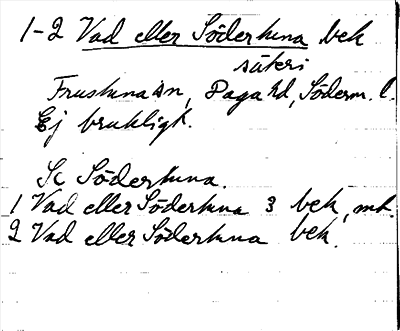 1-2 Vad eller Södertuna bek
säteri
Frustuna sn, Daga hd, Söderm. l.
Ej brukligt.
Se Södertuna.
1 Vad eller Södertuna 3 bek, mt.
2 Vad eller Södertuna bek.